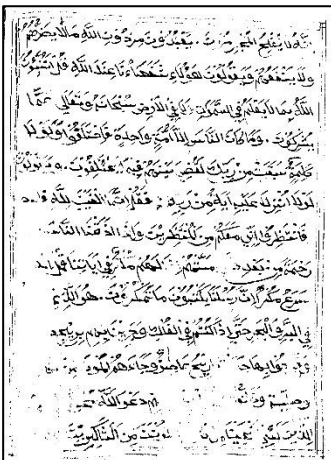 إنه لا يفلح المجرمون ويعبدون من دون الله ما لا يضرهم
ولا ينفعهم ويقولون هؤلاء شفعاؤنا عند الله قل أتنبئون
الله بما لا يعلم في السموات ولا في الأرض سبحانه وتعالى عما
يشركون وما كان الناس إلا أمة واحدة فاختلفوا ولولا
كلمة سبقت من ربك لقضي بينهم فيما فيه يختلفون ويقولون
لولا أنزل عليه آية من ربه فقل إنما الغيب لله
فانتظروا إني معكم من المنتظرين وإذا أذقنا الناس
رحمة من بعد مستهم إذا لهم مكر في آياتنا قل الله
أسرع مكرا إن رسلنا يكتبون ما تمكرون هو الذي
في البر والبحر حتى إذا كنتم في الفلك وجرين بهم بريح
بها ريح عاصف وجاءهم الموج من
دعوا الله
الدين من الشاكرين